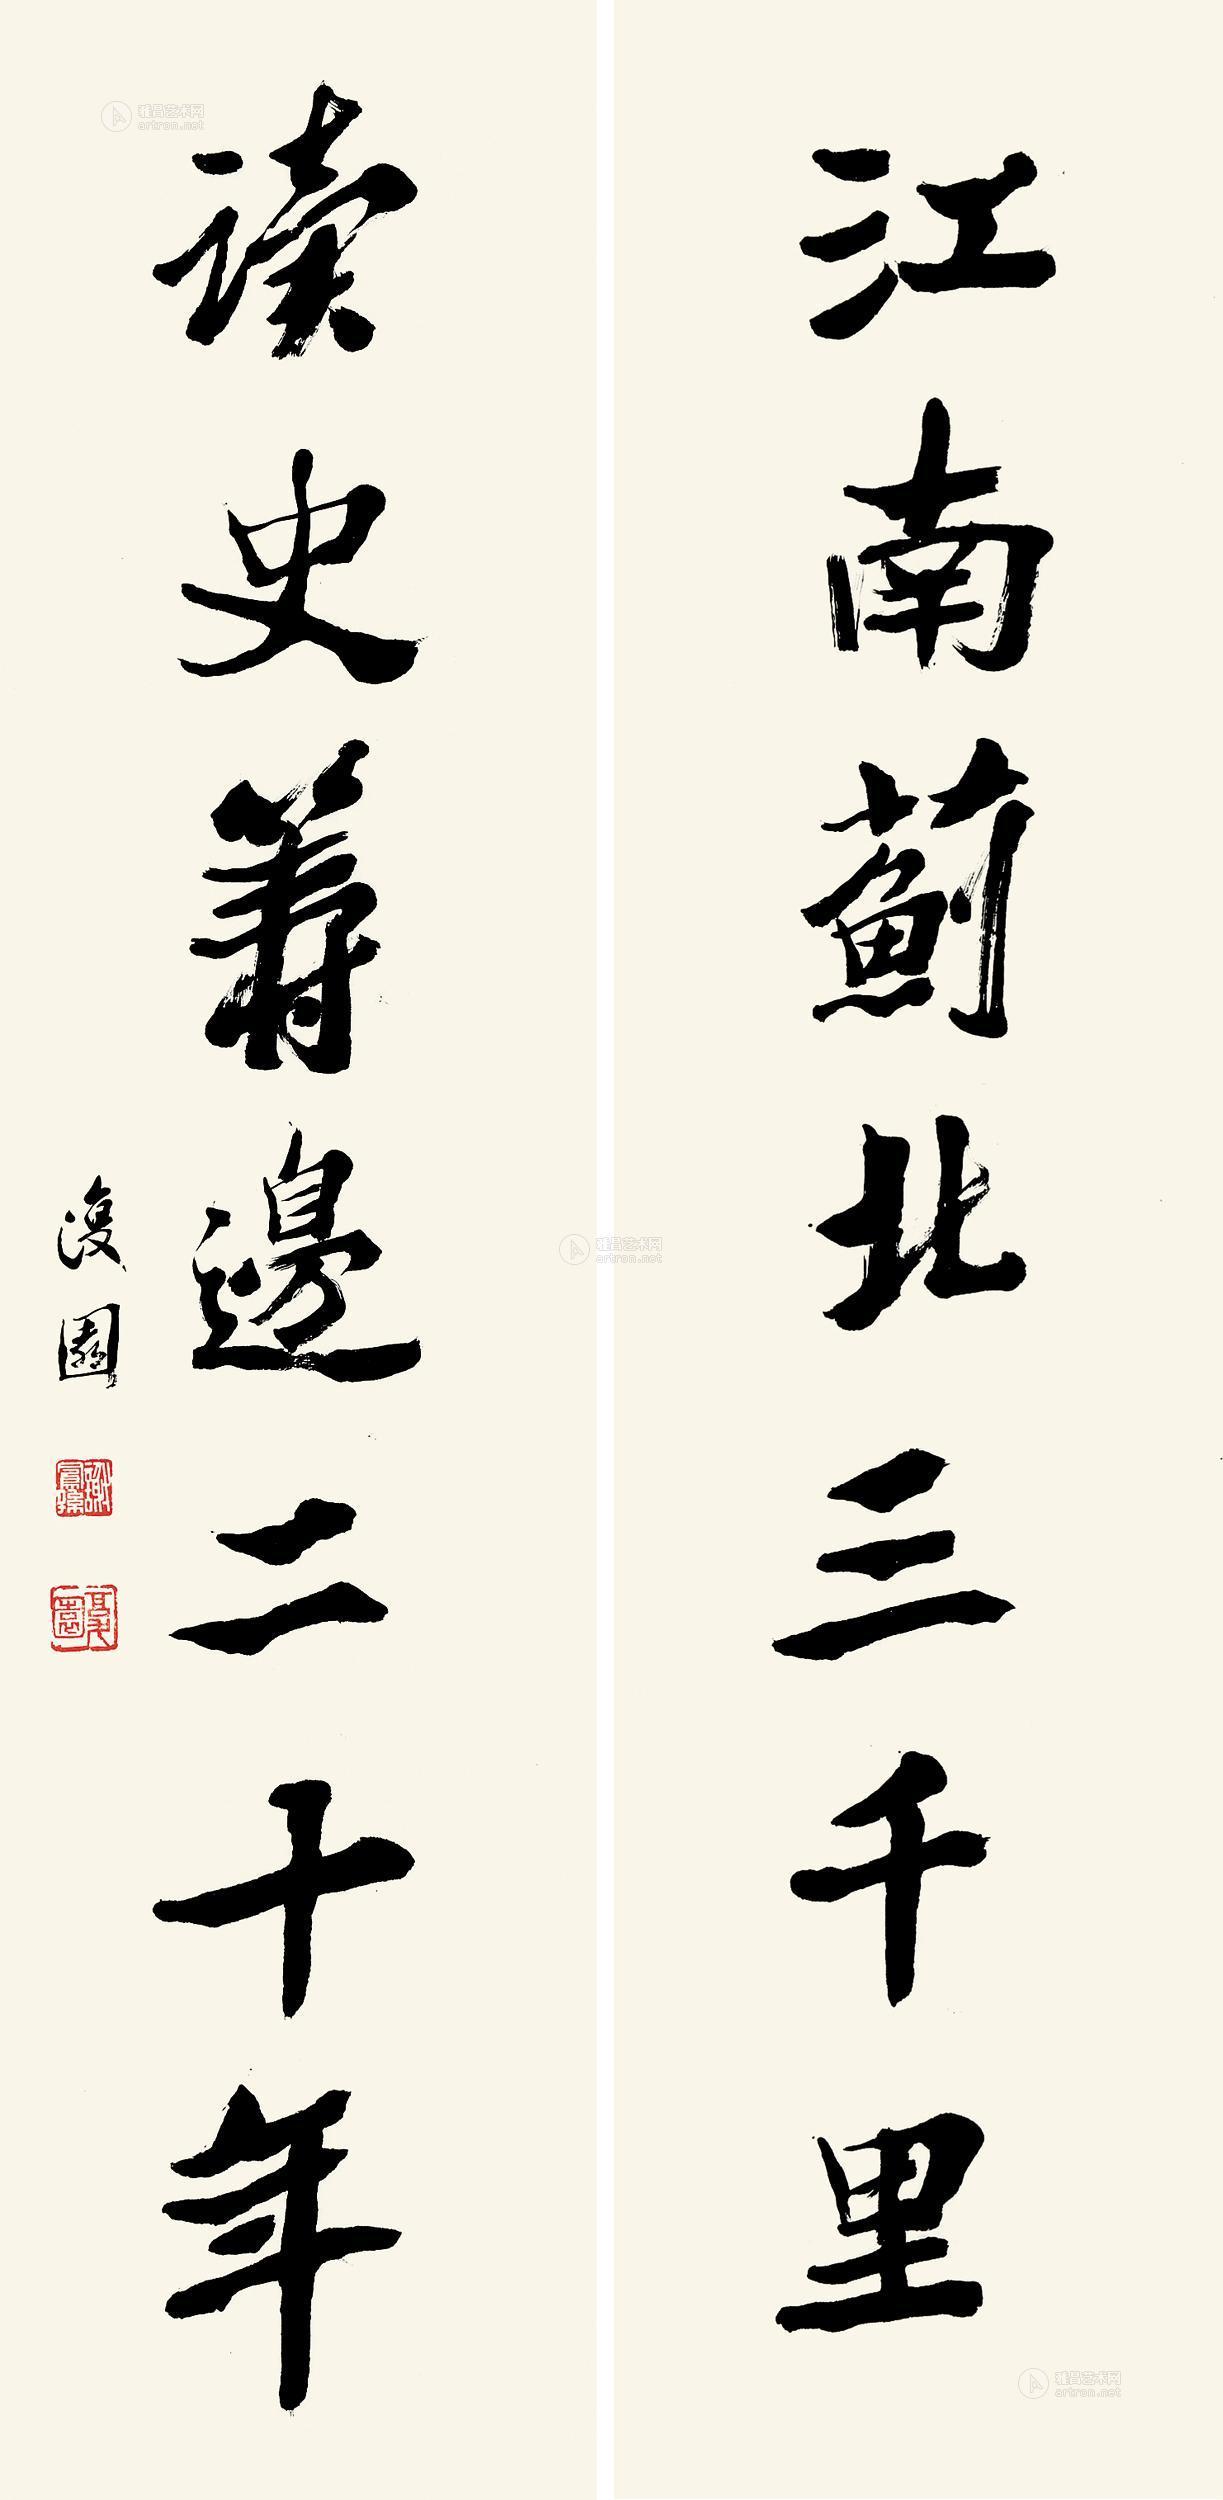 江南薊北三千里
讀史籌邊二十年
復園
謝鳳孫
復園
雅昌艺术网
artron.net
雅昌艺术网
artron.net
雅昌艺术网
artron.net